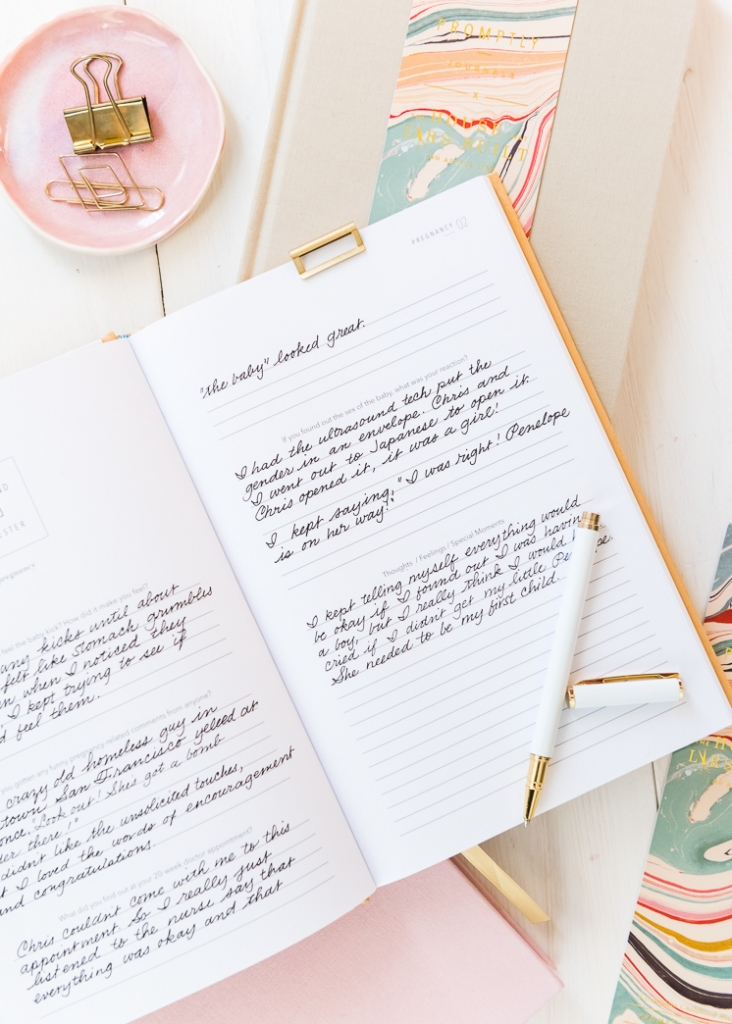 PROMPTLY
JOURNALS
X
PREGNANCY 02
"the baby" looked great.
If you found out the sex of the baby, what was your reaction?
I had the ultrasound tech put the
gender in an envelope. Chris and
I went out to Japanese to open it.
Chris opened it, it was a girl!
I kept saying, "I was right! Penelope
is on her way!"
Thoughts / Feelings / Special Moments
I kept telling myself everything would
be okay if I found out I was having
a boy, but I really think I would
cried if I didn't get my little
She needed to be my first child.
feel the baby kick? How did it make you feel?
kicks until about
felt like stomach grumbles
when I noticed they
I kept trying to see if
feel them.
any funny pregnancy related comments from anyone?
crazy old homeless guy in
town San Francisco yelled at
once, "Look out! She's got a bomb
der there!"
didn't like the unsolicited touches,
I loved the words of encouragement
and congratulations.
What did you find out at your 20 week doctor appointment?
Chris couldn't come with me to this
appointment. So I really just
listened to the nurse say that
everything was okay and that